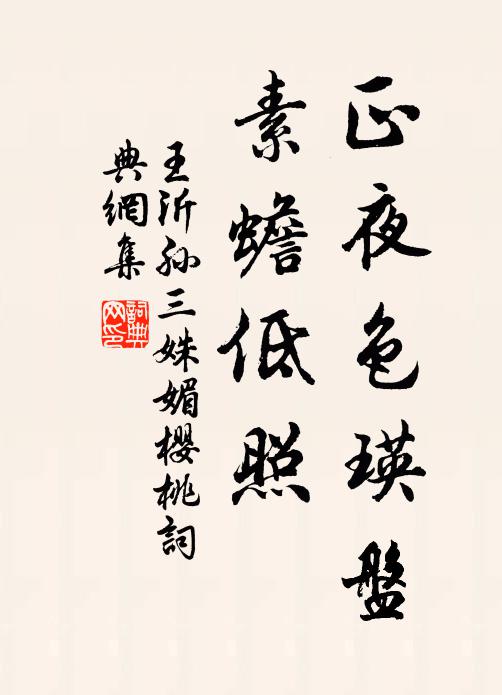 正夜色瑛盤
素蟾低照
王沂孙三姝媚櫻桃詞
典網集
詞典
网印